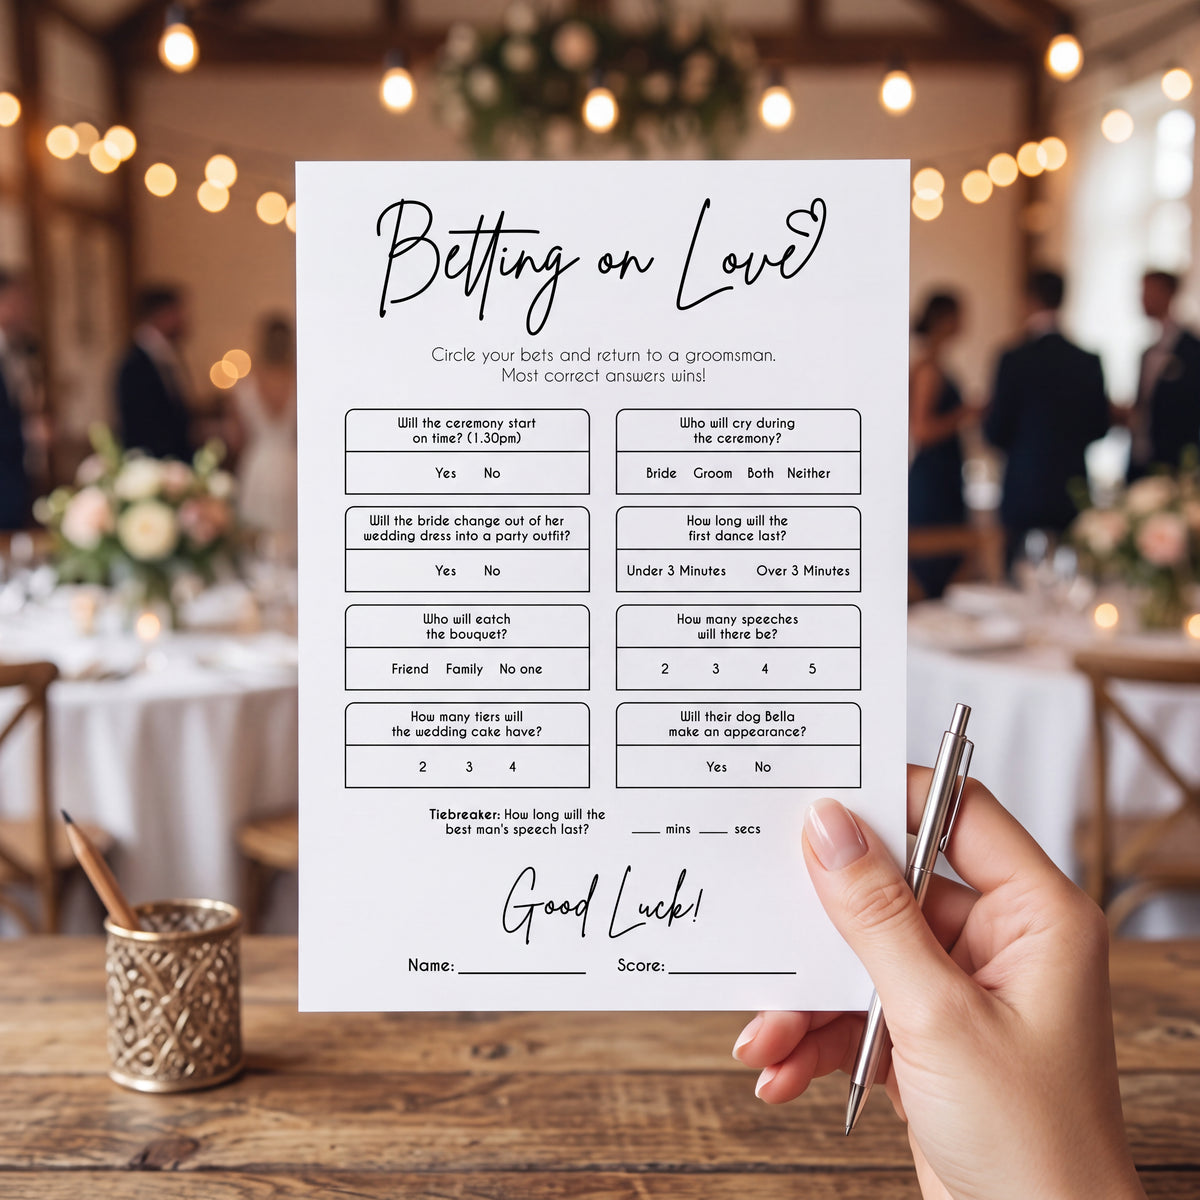 Betting on Love
Circle your bets and return to a groomsman.
Most correct answers wins!
Will the ceremony start
on time? (1.30pm)
Yes No
Who will cry during
the ceremony?
Bride Groom Both Neither
Will the bride change out of her
wedding dress into a party outfit?
Yes No
How long will the
first dance last?
Under 3 Minutes Over 3 Minutes
Who will eatch
the bouquet?
Friend Family No one
How many speeches
will there be?
2 3 4 5
How many tiers will
the wedding cake have?
2 3 4
Will their dog Bella
make an appearance?
Yes No
Tiebreaker: How long will the
best man's speech last?
____ mins ____ secs
Good Luck!
Name: ____________ Score: ____________